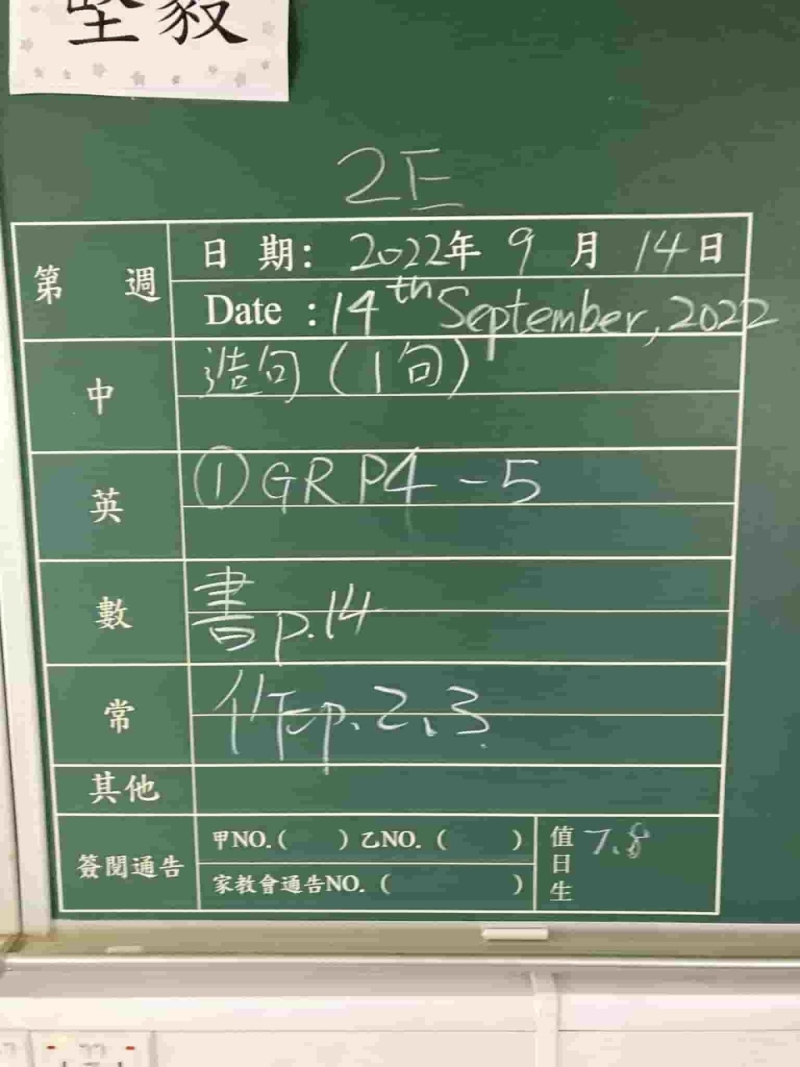 堅毅
2E
第 週
日 期: 2022年 9 月 14日
Date : 14th September, 2022
中
造句 (1句)
英
① GR P4-5
數
書 p.14
常
作 p. 2、3
其他
簽閱通告
甲NO.( ) 乙NO. ( )
家教會通告NO. ( )
值日生
7、8